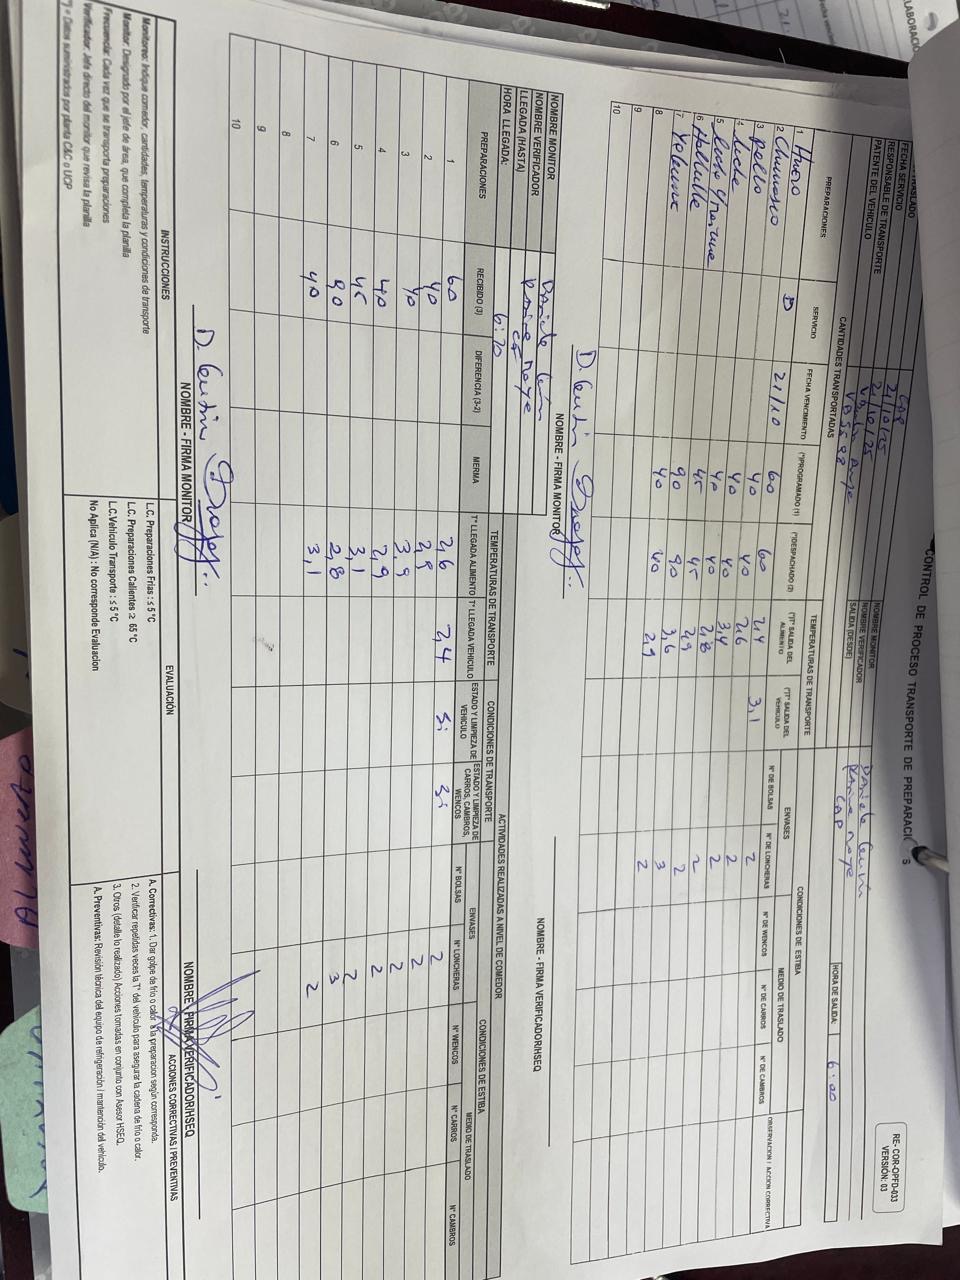 CONTROL DE PROCESO TRANSPORTE DE PREPARACI S
RE- COR-OPFD-033
VERSIÓN: 03
TRASLADO CAP
FECHA SERVICIO 21/10/25
RESPONSABLE DE TRANSPORTE 21/10/25
PATENTE DEL VEHICULO
NOMBRE MONITOR
NOMBRE VERIFICADOR
SALIDA (DESDE) CAP
HORA DE SALIDA: 6:00
CANTIDADES TRANSPORTADAS TEMPERATURAS DE TRANSPORTE CONDICIONES DE ESTIBA
ENVASES MEDIO DE TRASLADO
PREPARACIONES SERVICIO FECHA VENCIMIENTO (*)PROGRAMADO (1) (*)DESPACHADO (2) (*)T° SALIDA DEL ALIMENTO (*)T° SALIDA DEL VEHICULO N° DE BOLSAS N° DE LONCHERAS N° DE WENCOS N° DE CARROS N° DE CAMBROS OBSERVACION / ACCION CORRECTIVA
1 Huevo D 21/10 60 60 2,4 3,1 2
2 Churrasco 40 40 2,6 2
3 pollo 40 40 3,4 2
4 leche 40 40 2,8 2
5 45 45 2,9 2
6 Hallulla 90 90 3,6 3
7 40 40 2,9 2
8
9
10
NOMBRE - FIRMA MONITOR
NOMBRE - FIRMA VERIFICADOR/HSEQ
NOMBRE MONITOR
NOMBRE VERIFICADOR
LLEGADA (HASTA)
HORA LLEGADA:
ACTIVIDADES REALIZADAS A NIVEL DE COMEDOR
TEMPERATURAS DE TRANSPORTE CONDICIONES DE TRANSPORTE CONDICIONES DE ESTIBA
ENVASES MEDIO DE TRASLADO
PREPARACIONES RECIBIDO (3) DIFERENCIA (3-2) MERMA T° LLEGADA ALIMENTO T° LLEGADA VEHICULO ESTADO Y LIMPIEZA DE VEHICULO ESTADO Y LIMPIEZA DE CARROS, CAMBROS, WENCOS N° BOLSAS N° LONCHERAS N° WENCOS N° CARROS N° CAMBROS
1 60 2,6 2,4 Si Si 2
2 40 2,8 2
3 40 3,9 2
4 40 2,9 2
5 45 3,1 2
6 90 2,8 3
7 40 3,1 2
8
9
10
NOMBRE - FIRMA MONITOR
NOMBRE FIRMA VERIFICADOR/HSEQ
INSTRUCCIONES
Monitoreo: Indique comedor, cantidades, temperaturas y condiciones de transporte
Monitor: Designado por el jefe de área, que completa la planilla
Frecuencia: Cada vez que se transporta preparaciones
Verificador: Jefe directo del monitor que revisa la planilla
(*) = Datos suministrados por planta C&C o UCP
EVALUACIÓN
L.C. Preparaciones Frias : ≤ 5 °C
L.C. Preparaciones Calientes ≥ 65 °C
L.C.Vehiculo Transporte : ≤ 5 °C
No Aplica (N/A) : No corresponde Evaluacion
ACCIONES CORRECTIVAS / PREVENTIVAS
A. Correctivas: 1. Dar golpe de frío o calor a la preparacion según corresponda.
2. Verificar repetidas veces la T° del vehículo para asegurar la cadena de frío o calor.
3. Otros (detalle lo realizado) Acciones tomadas en conjunto con Asesor HSEQ.
A. Preventivas: Revisión técnica del equipo de refrigeración / mantención del vehículo.